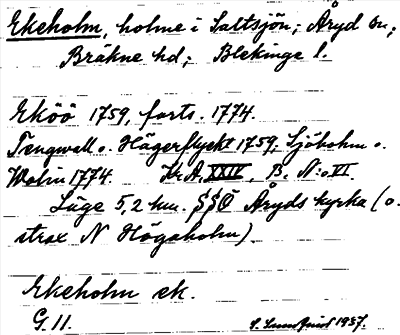 Ekeholm, holme i Saltsjön; Åryd sn;
Bräkne hd; Blekinge l.
Eköö 1759, forts. 1774.
Tengwall o. Hägerflyckt 1759. Sjöholm o.
Wolin 1774. Kr. A. XXIV, B. N:o VI.
Läge 5,2 km. SSÖ Åryds kyrka (o.
strax N Högaholm).
Ekeholm ek.
G. 11. S. Lundquist 1937.